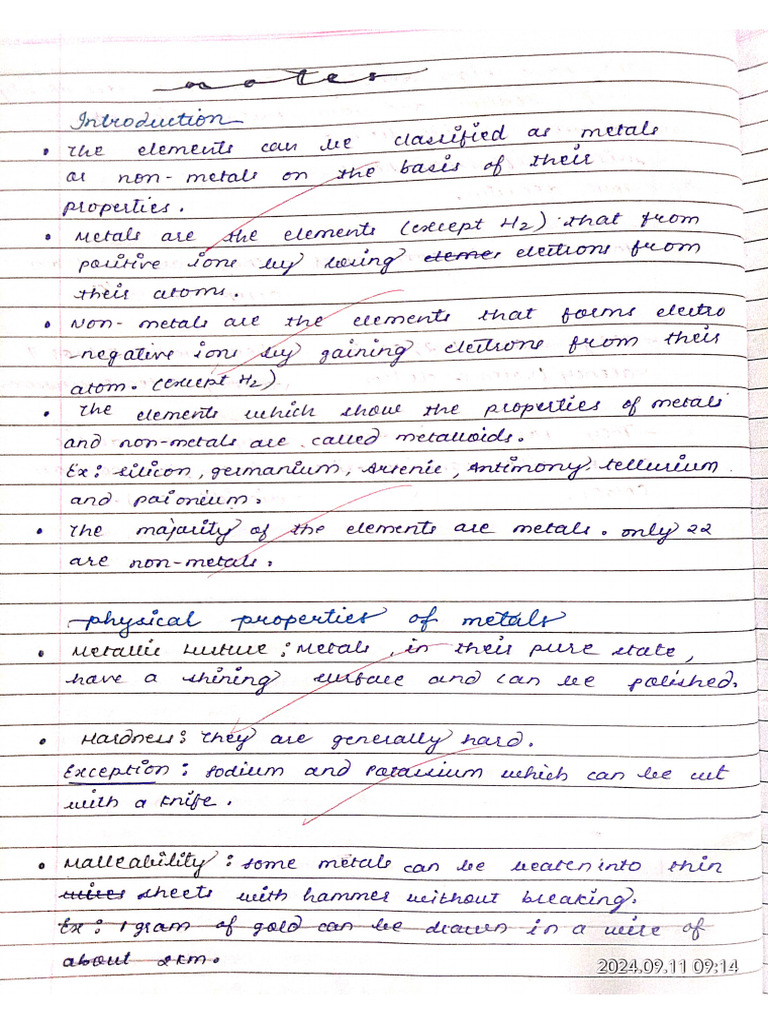 notes
Introduction
• The elements can be classified as metals
or non-metals on the basis of their
properties.
• Metals are the elements (except H2) that from
positive ions by losing elemes electrons from
their atoms.
• Non-metals are the elements that forms electro
-negative ions by gaining electrons from their
atom. (except H2)
• The elements which show the properties of metals
and non-metals are called metalloids.
Ex: silicon, germanium, Arsenic, Antimony, tellurium
and paionium.
• The majority of the elements are metals. only 22
are non-metals.
physical properties of metals
• Metallic lusture: Metals, in their pure state,
have a shining surface and can be polished.
• Hardness: They are generally hard.
Exception: sodium and Potassium which can be cut
with a knife.
• Malleability: some metals can be beaten into thin
wires sheets with hammer without breaking.
Ex: 1 gram of gold can be drawn in a wire of
about 2km.
2024.09.11 09:14